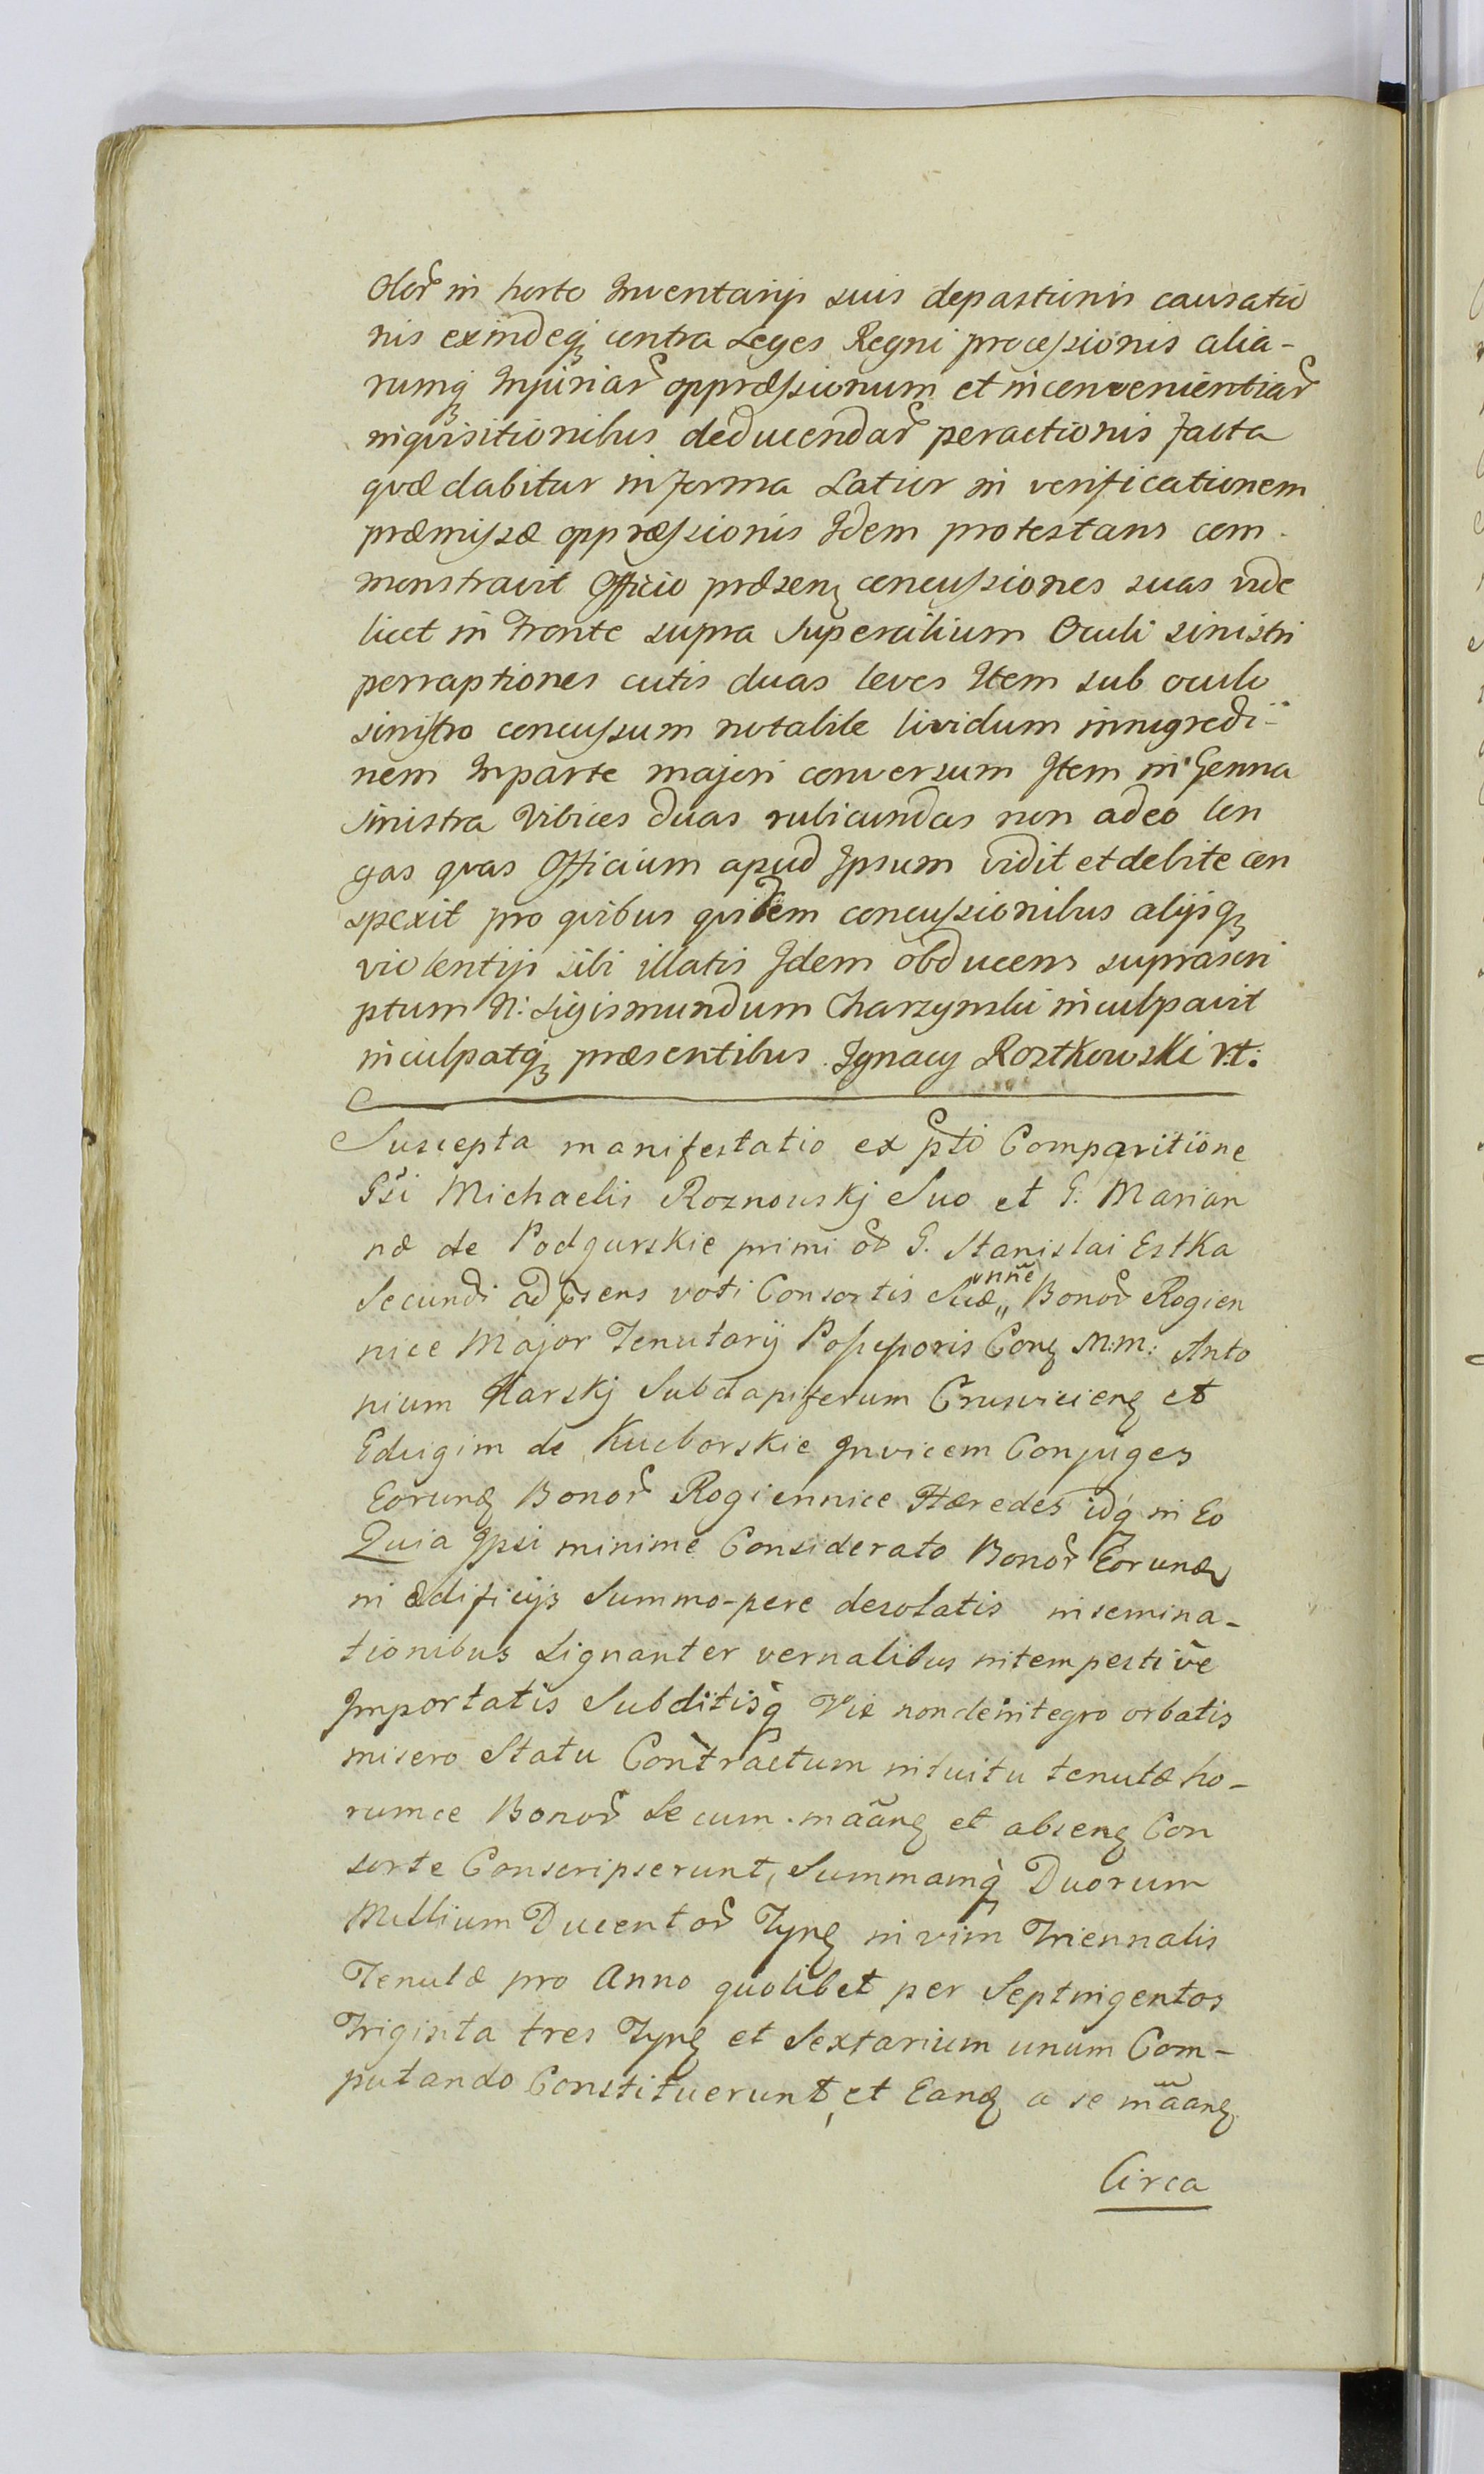 olor̃ in horto Inventarijs suis depastionis causatio
nis exindeq; contra Leges Regni processionis alia-
rumq; Injuriar̃ oppræssionum et inconvenientiar̃
inquisitionibus deducendar̃ peractionis facta
qvæ dabitur in forma Latior in verificationem
præmissæ oppræssionis Idem protestans com-
monstravit Officio præsenꝫ concussiones suas vide
licet in Fronte supra Supercilium Oculi sinistri
perraptiones cutis duas leves Item sub oculo
sinistro concussum notabile lividum innigredi-
nem In parte majori conversum Item in Genna
sinistra Vibices duas rubicundas non adeo lon
gas qvas Officium apud Ipsum vidit et debite con
spexit pro qvibus qvidem concussionibus alijsq;
violentijs sibi illatis Idem obducens suprascri
ptum N: Sigismundum Charzynski inculpavit
inculpatq; præsentibus. Ignacy Rostkowski vt:
Suscepta manifestatio ex pt̃i Comparitione
Gsi Michaelis Roznowskj Suo et G. Marian
næ de Podgurskie primi ot̃ G. Stanislai Estka
Secundi ad p̃sens voti Consortis Suæ,, unn̄e Bonor̃ Rogien
nice Major Tenutarij Possessoris Conꝫ M:m: Anto
nium Karskj Subdapiferum Crusvicienꝫ et
Edvigim de Kucborskie Invicem Conjuges
Eorundꝫ Bonor̃ Rogiennice Hæredes idq́ in Eo
Quia Ipsi minime Considerato Bonor̃ Eorundꝫ
in ædificijs Summo-pere desolatis in semina-
tionibus Signanter vernalibus intempestive
Importatis Subditisq́ Vix non de integro orbatis
misero Statu Contractum intuitu tenutæ ho-
rumce Bonor̃ Secum mãanꝫ et absenꝫ Con
sorte Conscripserunt, Summamq́ Duorum
Millium Ducentor̃ Tynꝫ in vim Triennalis
Tenutæ pro Anno quolibet per Septingentos
Triginta tres Tynꝫ et Sextarium unum Com-
putando Constituerunt, et Eandꝫ a se mãanꝫ
Circa